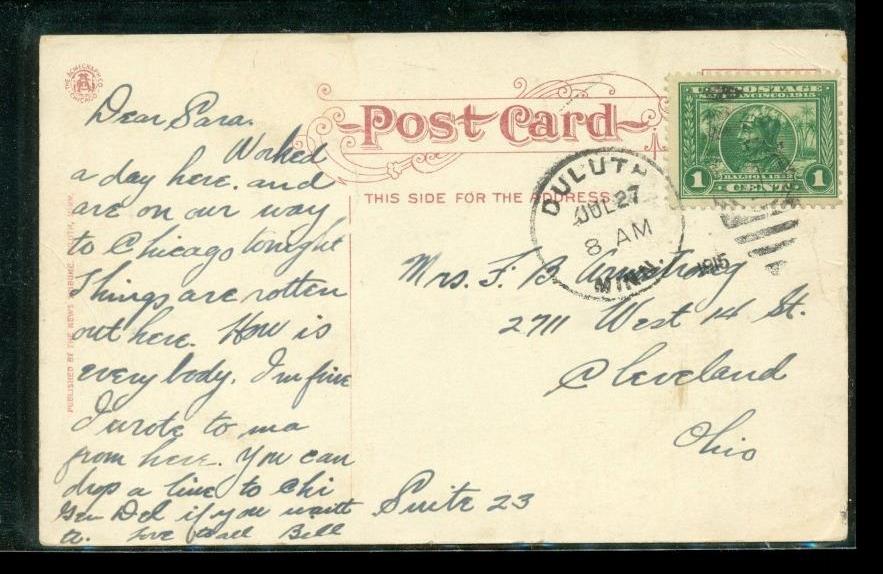 THE ACMEGRAPH CO.
CHICAGO
Post Card
THIS SIDE FOR THE ADDRESS
U.S. POSTAGE
SAN FRANCISCO 1915
BALBOA 1513
1 CENT 1
DULUTH
JUL 27
8 AM
MINN.
1915
Dear Sara.
Worked
a day here. and
are on our way
to Chicago tonight
Things are rotten
out here. How is
everybody. I'm fine
I wrote to ma
from here. You can
drop a line to Chi
Gen Del if you want
to. Love to all Bell
Mrs. F. B Armstrong
2711 West 14 St.
Cleveland
Ohio
Suite 23
PUBLISHED BY THE NEWS TRIBUNE, DULUTH, MINN.